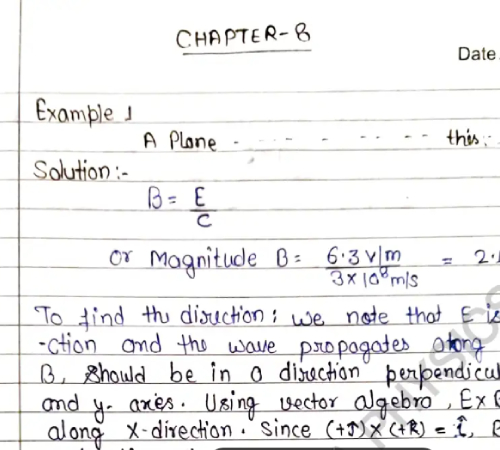 CHAPTER-8
Date
Example 1
A Plane - - - - - - - - this:
Solution:-
B = E/C
or Magnitude B = 6.3 V/m / 3×10⁸ m/s = 2.1
To find the direction: we note that E is
-ction and the wave propagates along
B, should be in a direction perpendicul
and y-axies. Using vector algebra, E×B
along X-direction. Since (+ĵ)×(+k̂) = î,
PHYSICS